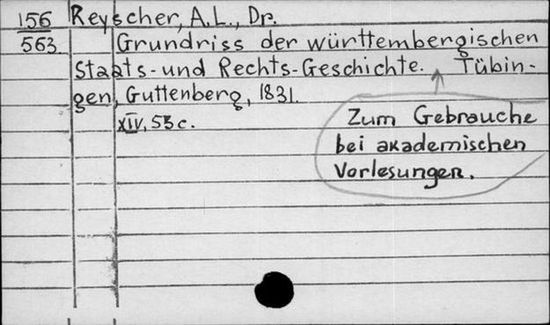 156 Reyscher, A.L., Dr.
563 Grundriss der württembergischen
Staats- und Rechts-Geschichte. Tübin-
gen, Guttenberg, 1831.
XIV, 53 c.
Zum Gebrauche
bei akademischen
Vorlesungen.